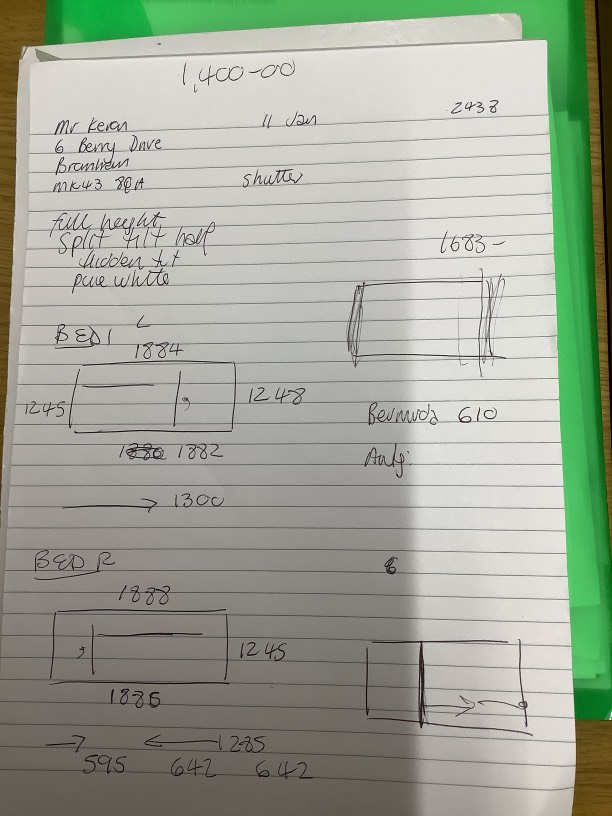 1,400-00
Mr Keran 11 Jan 2438
6 Berry Drive
Bromham
MK43 8QH shutter
full height
Split tilt half
hidden tilt
pure white
1683-
BED 1 L
1884
1245 1248
1882
Bermuda 610
→ 1300
BED R
1888
1245
1885
→ ← 1285
595 642 642